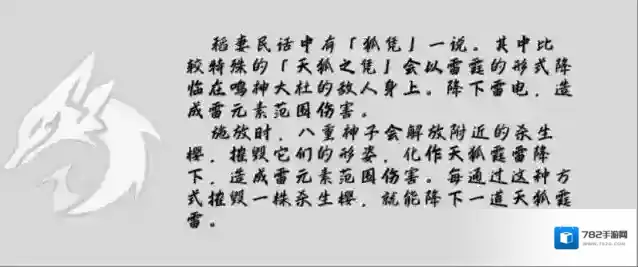 稻妻民话中有「狐凭」一说。其中比
较特殊的「天狐之凭」会以雷霆的形式降
临在鸣神大社的敌人身上。降下雷电，造
成雷元素范围伤害。
施放时，八重神子会解放附近的杀生
樱，摧毁它们的形姿，化作天狐霆雷降
下，造成雷元素范围伤害。每通过这种方
式摧毁一株杀生樱，就能降下一道天狐霆
雷。
782手游网